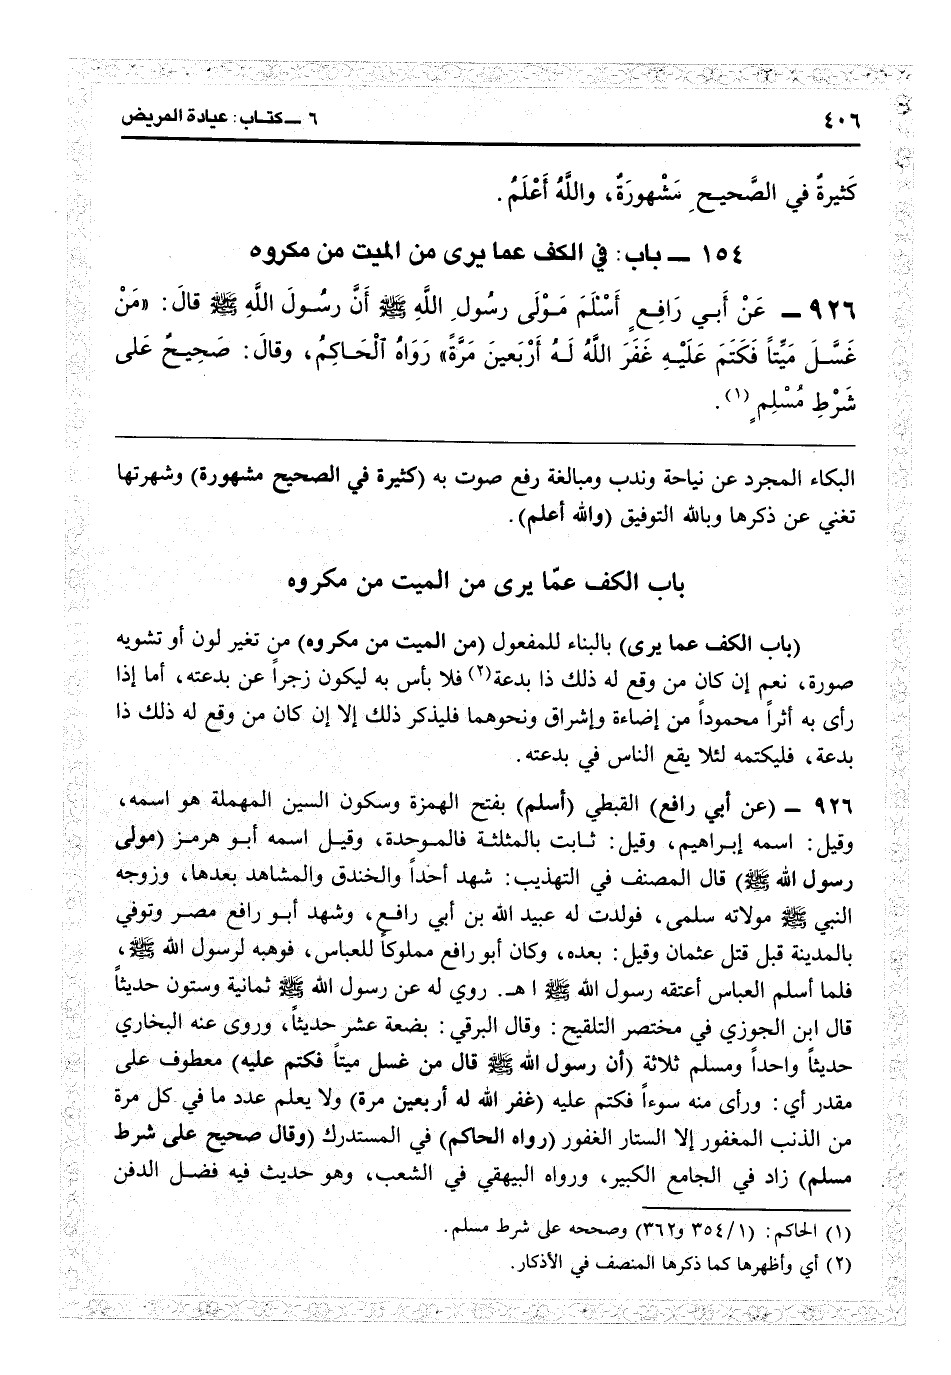 ٤٠٦
٦ ــ كتـاب: عيادة المريض
كَثيرةٌ في الصَّحيـحِ مَشْهورَةٌ، واللَّهُ أَعْلَمُ.
١٥٤ ــ باب: في الكف عما يرى من الميت من مكروه
٩٢٦ ــ عَنْ أَبـي رَافِعٍ أَسْلَمَ مَوْلَى رسُولِ اللَّهِ ﷺ أَنَّ رسُـولَ اللَّهِ ﷺ قالَ: «مَنْ
غَسَّلَ مَيِّتاً فَكَتَمَ عَلَيْهِ غَفَرَ اللَّهُ لَهُ أَرْبَعينَ مَرَّةً» رَوَاهُ ٱلْحَاكِمُ، وقالَ: صَحِيحٌ عَلى
شَرْطِ مُسْلِمٍ(١).
البكاء المجرد عن نياحة وندب ومبالغة رفع صوت به (كثيرة في الصحيح مشهورة) وشهرتها
تغني عن ذكرها وبالله التوفيق (والله أعلم).
باب الكف عمّا يرى من الميت من مكروه
(باب الكف عما يرى) بالبناء للمفعول (من الميت من مكروه) من تغير لون أو تشويه
صورة، نعم إن كان من وقع له ذلك ذا بدعة(٢) فلا بأس به ليكون زجراً عن بدعته، أما إذا
رأى به أثراً محموداً من إضاءة وإشراق ونحوهما فليذكر ذلك إلا إن كان من وقع له ذلك ذا
بدعة، فليكتمه لئلا يقع الناس في بدعته.
٩٢٦ ــ (عن أبي رافع) القبطي (أسلم) بفتح الهمزة وسكون السين المهملة هو اسمه،
وقيل: اسمه إبـراهيم، وقيل: ثـابت بالمثلثة فالمـوحدة، وقيـل اسمه أبـو هرمـز (مولى
رسول الله ﷺ) قال المصنف في التهذيب: شهد أحداً والخندق والمشاهد بعدها، وزوجه
النبي ﷺ مولاته سلمى، فولدت له عبيد الله بن أبي رافـع، وشهد أبـو رافع مصـر وتوفي
بالمدينة قبل قتل عثمان وقيل: بعده، وكان أبو رافع مملوكاً للعباس، فوهبه لرسول الله ﷺ،
فلما أسلم العباس أعتقه رسول الله ﷺ ا هـ. روي له عن رسول الله ﷺ ثمانية وستون حديثاً
قال ابن الجوزي في مختصر التلقيح: وقال البرقي: بضعة عشر حديثاً، وروى عنه البخاري
حديثاً واحداً ومسلم ثلاثة (أن رسول الله ﷺ قال من غسل ميتاً فكتم عليه) معطوف على
مقدر أي: ورأى منه سوءاً فكتم عليه (غفر الله له أربعين مرة) ولا يعلم عدد ما في كل مرة
من الذنب المغفور إلا الستار الغفور (رواه الحاكم) في المستدرك (وقال صحيح على شرط
مسلم) زاد في الجامع الكبير، ورواه البيهقي في الشعب، وهو حديث فيه فضـل الدفن
(١) الحاكم: (٣٥٤/١ و٣٦٢) وصححه على شرط مسلم.
(٢) أي وأظهرها كما ذكرها المنصف في الأذكار.